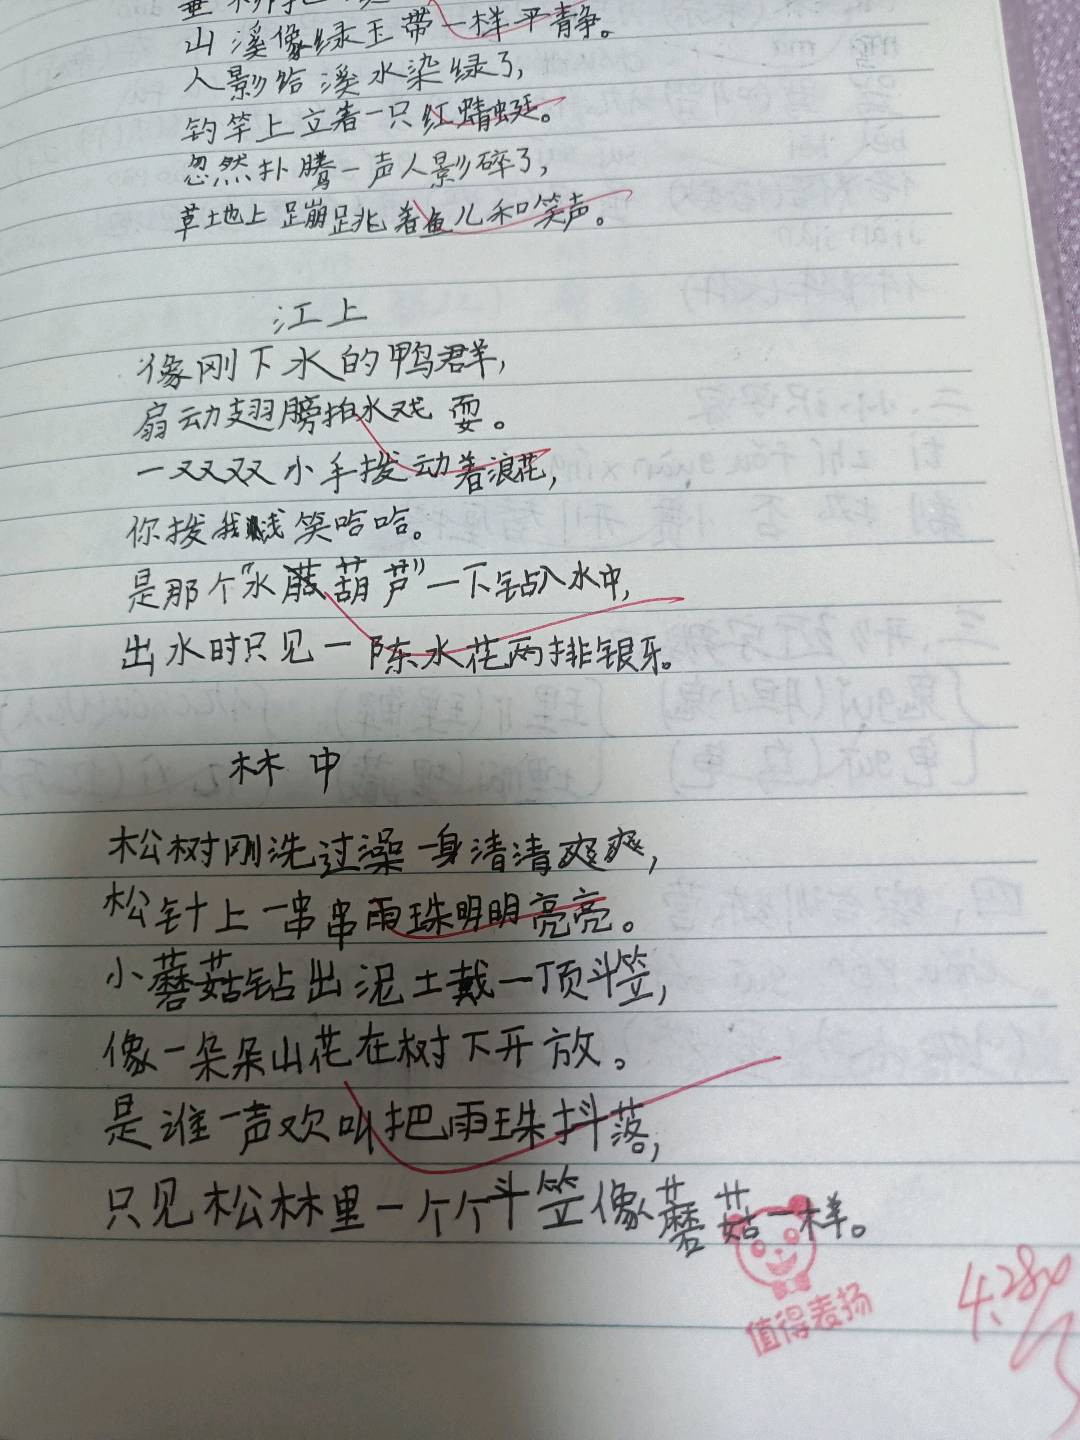 垂柳把
山溪像绿玉带一样平静。
人影给溪水染绿了，
钓竿上立着一只红蜻蜓。
忽然扑腾一声人影碎了，
草地上蹦跳着鱼儿和笑声。
江上
像刚下水的鸭群，
扇动翅膀拍水戏耍。
一双双小手拨动着浪花，
你拨我溅笑哈哈。
是那个“水葫芦”一下钻入水中，
出水时只见一阵水花两排银牙。
林中
松树刚洗过澡一身清清爽爽，
松针上一串串雨珠明明亮亮。
小蘑菇钻出泥土戴一顶斗笠，
像一朵朵山花在树下开放。
是谁一声欢叫把雨珠抖落，
只见松林里一个个斗笠像蘑菇一样。
值得表扬
4.28